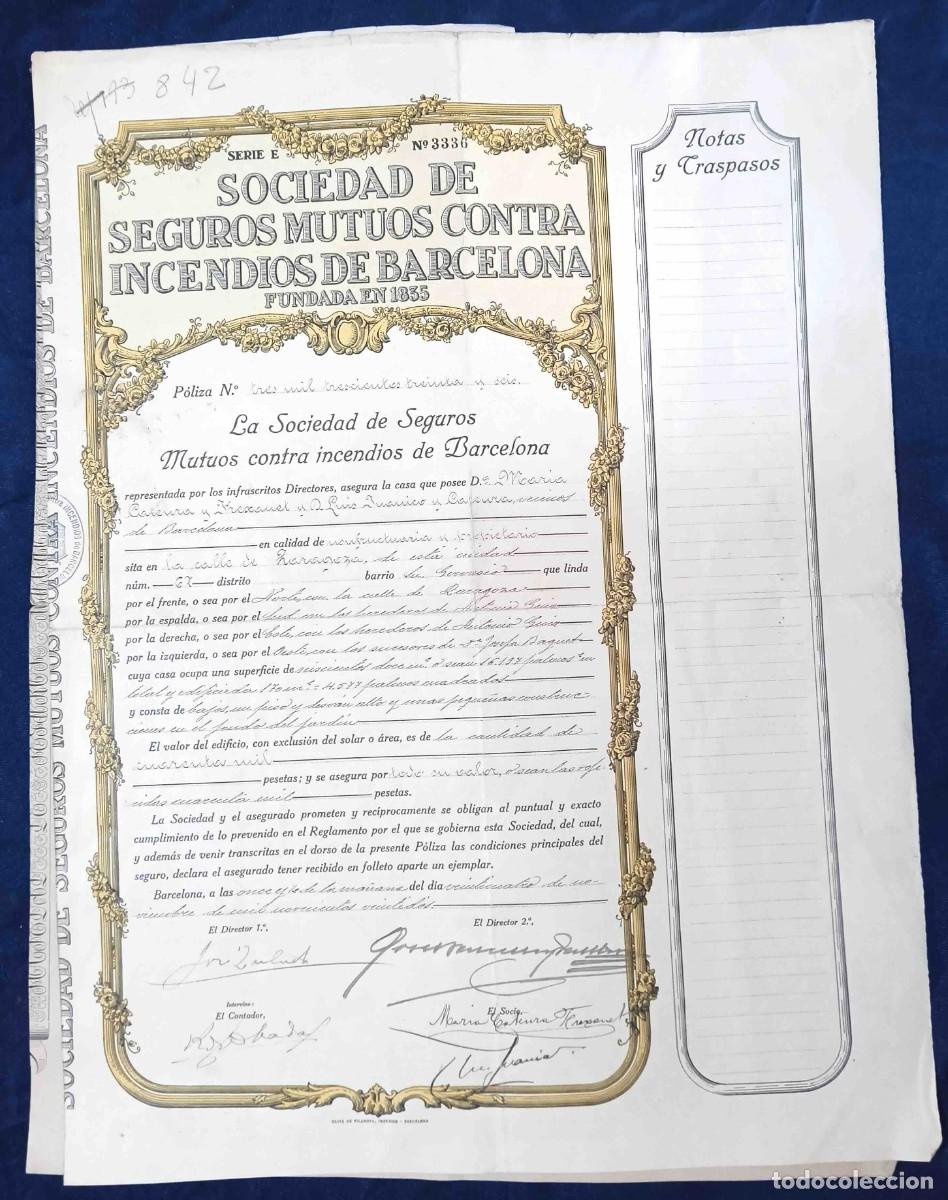 842
SERIE E Nº 3336
SOCIEDAD DE
SEGUROS MUTUOS CONTRA
INCENDIOS DE BARCELONA
FUNDADA EN 1835
Póliza N.º tres mil trescientos treinta y seis.
La Sociedad de Seguros
Mutuos contra incendios de Barcelona
representada por los infrascritos Directores, asegura la casa que posee D.ª Maria
Cateura y Frexanet y D. Luis Juanico y Cateura, vecinos
de Barcelona
en calidad de usufructuaria y propietario
sita en la calle de Zaragoza, de esta ciudad
núm. 67 distrito barrio Sn. Gervasio que linda
por el frente, o sea por el Norte, con la calle de Zaragoza
por la espalda, o sea por el Sud con los herederos de Antonio
por la derecha, o sea por el Este, con los herederos de Antonio
por la izquierda, o sea por el Oeste, con los sucesores de D.ª Josefa Baguet
cuya casa ocupa una superficie de seiscientos doce m.² o sean 16.197 palmos en
total y edificados 170 m.² = 4.577 palmos cuadrados
y consta de bajos, un piso y desvan alto y unas pequeñas construc-
ciones en el fondo del jardín
El valor del edificio, con exclusión del solar o área, es de la cantidad de
cuarenta mil
pesetas; y se asegura por todo su valor, o sean las refe-
ridas cuarenta mil pesetas.
La Sociedad y el asegurado prometen y recíprocamente se obligan al puntual y exacto
cumplimiento de lo prevenido en el Reglamento por el que se gobierna esta Sociedad, del cual,
y además de venir transcritas en el dorso de la presente Póliza las condiciones principales del
seguro, declara el asegurado tener recibido en folleto aparte un ejemplar.
Barcelona, a las once y ½ de la mañana del día veinticuatro de no-
viembre de mil novecientos veintidós.
El Director 1.º, El Director 2.º,
Intervine:
El Contador, El Socio,
Maria Cateura Frexanet
Juanico
OLIVA DE VILANOVA, IMPRESOR - BARCELONA
Notas
y Traspasos
SOCIEDAD DE SEGUROS MUTUOS CONTRA INCENDIOS DE BARCELONA
todocoleccion